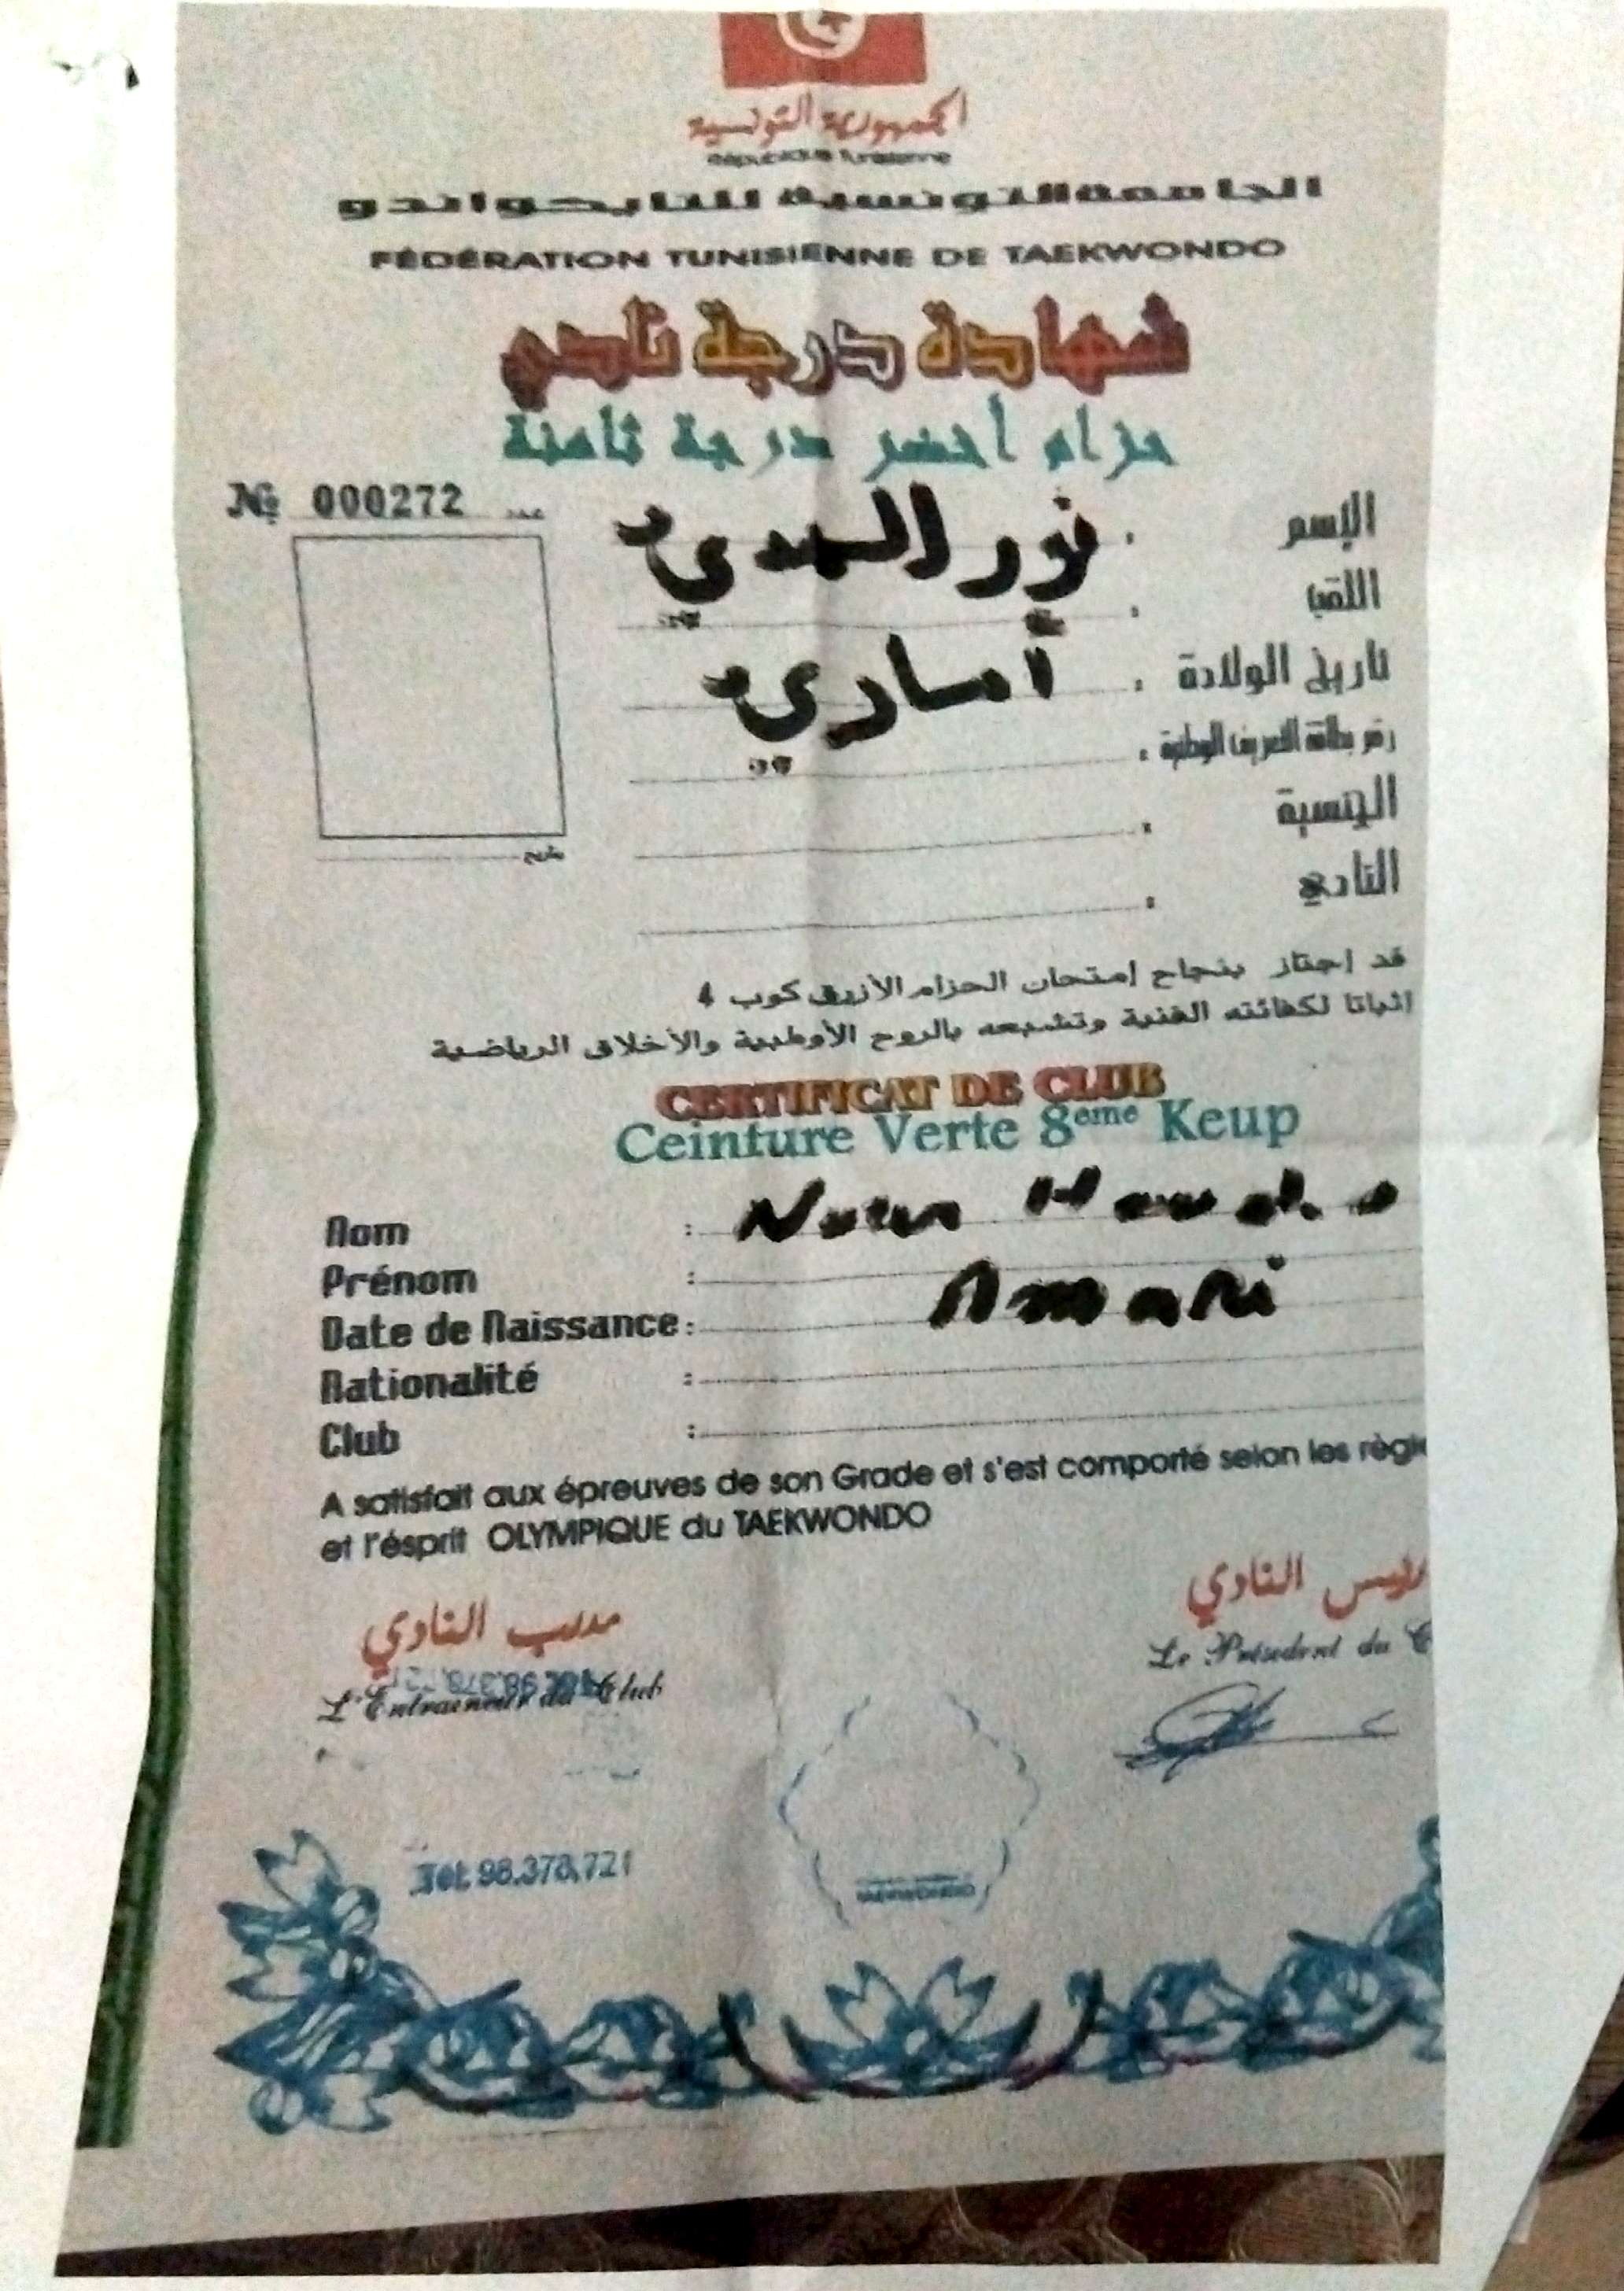 الجمهورية التونسية
République Tunisienne
الجامعة التونسية للتايكواندو
FÉDÉRATION TUNISIENNE DE TAEKWONDO
شهادة درجة نادي
حزام أخضر درجة ثامنة
№ 000272
الإسم : نور الهدى
اللقب :
تاريخ الولادة : أماري
رقم بطاقة التعريف الوطنية :
الجنسية :
النادي :
تاريخ
قد إجتاز بنجاح إمتحان الحزام الأزرق كوب 4
اثباتا لكفائته الفنية وتشبعه بالروح الأولمبية والأخلاق الرياضية
CERTIFICAT DE CLUB
Ceinture Verte 8eme Keup
Nom : Nour Houda
Prénom :
Date de Naissance: Amari
Nationalité :
Club :
A satisfait aux épreuves de son Grade et s'est comporté selon les règle
et l'ésprit OLYMPIQUE du TAEKWONDO
مدرب النادي
رئيس النادي
L'Entraineur du Club
Le Président du C
Tél: 98.378.721
TAEKWONDO